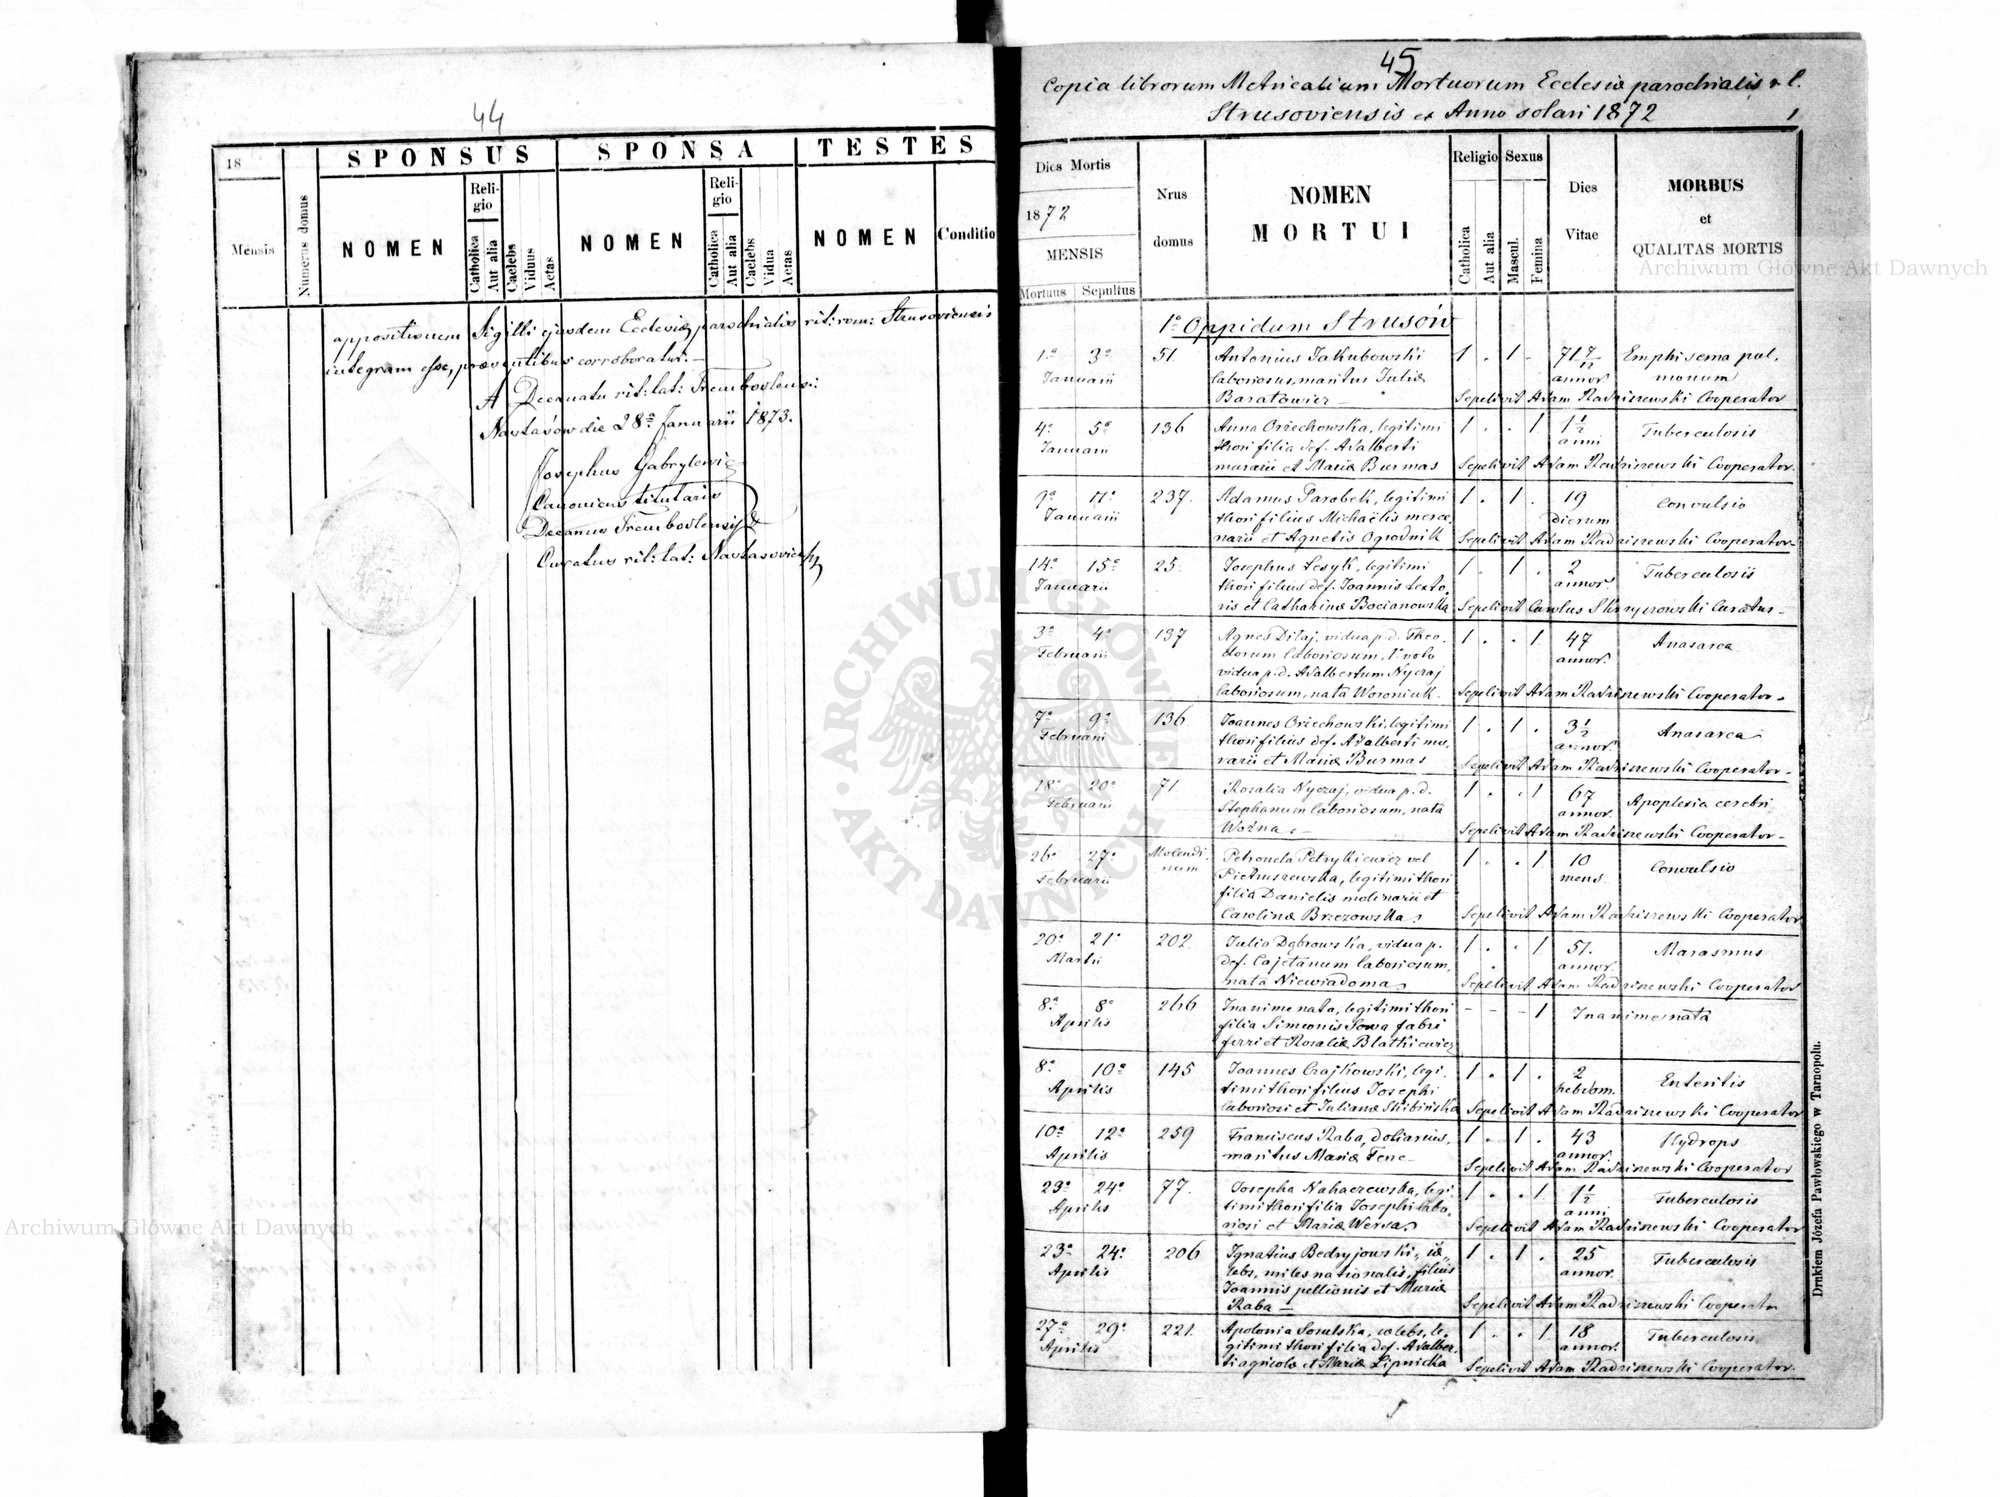 44
18
Mensis
Numerus domus
SPONSUS
NOMEN
Religio
Catholica
Aut alia
Caelebs
Viduus
Aetas
SPONSA
NOMEN
Religio
Catholica
Aut alia
Caelebs
Vidua
Aetas
TESTES
NOMEN
Conditio
appositionem Sigilli ejusdem Ecclesiæ parochialis rit: rom: Strusoviensis
integram esse, præsentibus corroboratur. —
A Decanatu rit: lat: Trembovlensi:
Nastasów die 28ª Januarii 1873.
Josephus Gabrylewicz
Canonicus titularis
Decanus Trembovlensis &
Curatus rit: lat: Nastasoviensis
45
Copia librorum Metricalium Mortuorum Ecclesiæ parochialis r. l.
Strusoviensis ex Anno solari 1872
1
Dies Mortis
1872
MENSIS
Mortuus Sepultus
Nrus
domus
NOMEN
MORTUI
Religio
Catholica
Aut alia
Sexus
Mascul.
Femina
Dies
Vitae
MORBUS
et
QUALITAS MORTIS
1º Oppidum Strusów
1ª 3ª 51 Antonius Jakubowski 1 . 1 . 71 Emphisema pul.
Januarii laboriosus, maritus Juliæ annor. monum
Baratowicz — Sepelivit Adam Radziszewski Cooperator
4ª 5ª 136 Anna Orzechowska, legitimi 1 . . 1 1½ Tuberculosis
Januarii thori filia def. Adalberti anni
murarii et Mariæ Burmas Sepelivit Adam Radziszewski Cooperator.
9ª 11ª 237. Adamus Parobek, legitimi 1 . 1 . 19 Convulsio
Januarii thori filius Michaëlis merce. dierum
narii et Agnetis Ogrodnik Sepelivit Adam Radziszewski Cooperator
14ª 15ª 25. Josephus Lesyk, legitimi 1 . 1 . 2 Tuberculosis
Januarii thori filius def. Joannis texto. annor.
ris et Catharinæ Bocianowska Sepelivit Carolus Curatus
3ª 4ª 137 Agnes Dilaj, vidua p. d. Theo. 1 . . 1. 47 Anasarca
Februarii dorum laboriosum, 1º voto annor.
vidua p. d. Adalbertum Nyczaj
laboriosum, nata Woroniuk. Sepelivit Adam Radziszewski Cooperator
7ª 9ª 136. Joannes Orzechowski, legitimi 1 . 1 . 3½ Anasarca
Februarii thori filius def. Adalberti mu. annor.
rarii et Mariæ Burmas Sepelivit Adam Radziszewski Cooperator
18ª 20ª 71 Rosalia Nyczaj, vidua p. d. 1 . . 1 67 Apoplexia cerebri
Februarii Stephanum laboriosum, nata annor.
Woźna Sepelivit Adam Radziszewski Cooperator
26ª 27ª Molendi. Petronela Petrykiewicz vel 1 . . 1. 10 Convulsio
Februarii num Pietruszewska, legitimi thori mens.
filia Danielis molinarii et
Carolinæ Brzezowska Sepelivit Adam Radziszewski Cooperator
20ª 21ª 202. Julia Dąbrowska, vidua p. 1 . . 1. 51. Marasmus
Martii def. Cajetanum laboriosum, annor.
nata Niewiadoma Sepelivit Adam Radziszewski Cooperator
8ª 8ª 266 Inanime nata, legitimi thori - - - 1 Inanime nata
Aprilis filia Simeonis Sowa fabri
ferri et Rosaliæ Blatkiewicz
8ª 10ª 145 Joannes Czajkowski, legi. 1 . 1 . 2 Enteritis
Aprilis timi thori filius Josephi hebdom.
laboriosi et Julianæ Skibińska Sepelivit Adam Radziszewski Cooperator
10ª 12ª 259 Franciscus Raba, doliarius, 1 . 1 . 43 Hydrops
Aprilis maritus Mariæ Tene annor.
Sepelivit Adam Radziszewski Cooperator
23ª 24ª 77. Josepha Nahaczewska, legi. 1 . . 1. 1½ Tuberculosis
Aprilis timi thori filia Josephi labo. anni
riosi et Mariæ Wersa Sepelivit Adam Radziszewski Cooperator
23ª 24ª 206 Ignatius Bedryjowski, cæ. 1 . 1 . 25 Tuberculosis
Aprilis lebs, miles nationalis, filius annor.
Joannis pellionis et Mariæ
Raba Sepelivit Adam Radziszewski Cooperator
27ª 29ª 221. Apolonia Sosulska, cælebs, le. 1 . . 1. 18 Tuberculosis
Aprilis gitimi thori filia def. Adalber. annor.
ti agricolæ et Mariæ Lipnicka Sepelivit Adam Radziszewski Cooperator.
Drukiem Józefa Pawłowskiego w Tarnopolu.
ARCHIWUM GŁÓWNE AKT DAWNYCH
Archiwum Główne Akt Dawnych
Archiwum Główne Akt Dawnych